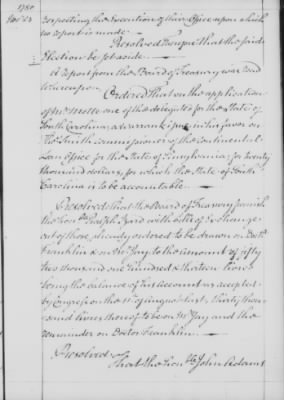 1780
Nov. 23
respecting the Execution of their Office upon which
no report is made.
Resolved therefore that the said
Election be set aside.
A report from the Board of Treasury was read
Whereupon
Ordered that on the application
of Mr Motte one of the delegates for the State of
South Carolina, a warrant issue in his favor on
Thos Smith commissioner of the Continental
Loan Office for the State of Pensylvania, for twenty
thousand dollars, for which the State of South
Carolina is to be accountable.
Resolved that the Board of Treasury furnish
the honble Ralph Izard with bills of Exchange
out of those already ordered to be drawn on Doctr
Franklin & on Mr Jay to the amount of fifty
two thousand one hundred & thirteen livres
being the balance of his Account as accepted
by Congress on the 11th of August last, thirty thou-
sand livres thereof to be on Mr Jay and the
remainder on Doctor Franklin.
Resolved
That the honble John Adams